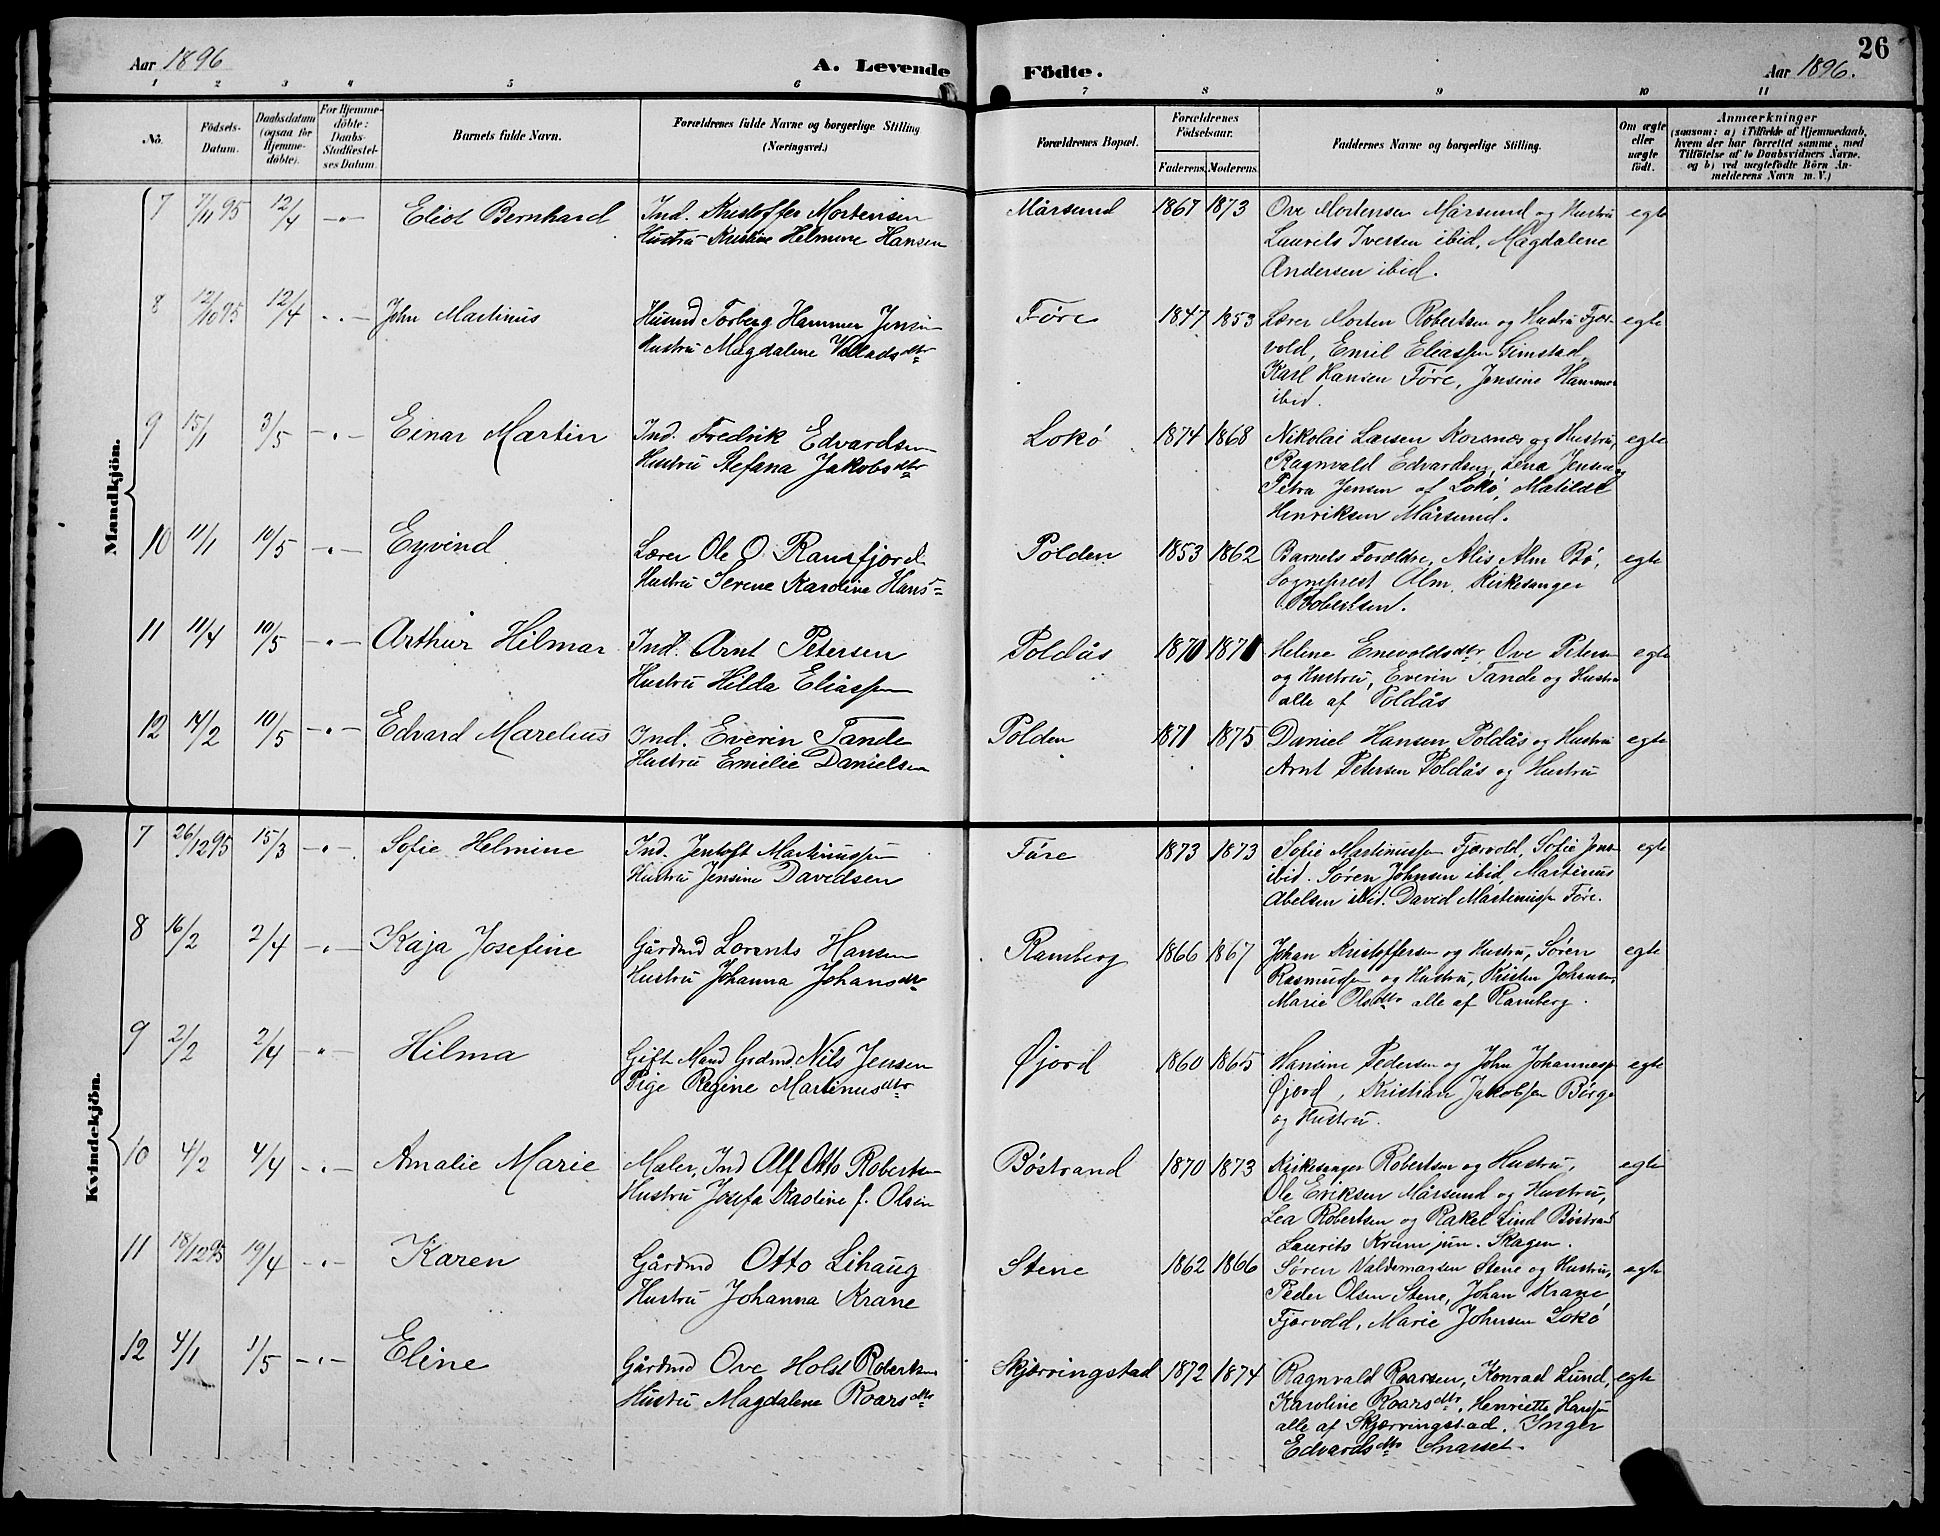 Aar 1896
A. Levende Födte.
Aar 1896.
26
1 2 3 4 5 6 7 8 9 10 11
No.
Födsels-Datum.
Daabsdatum (ogsaa for Hjemme-döbte).
For Hjemme-döbte: Daabs-Stadfæstel-ses Datum.
Barnets fulde Navn.
Forældrenes fulde Navne og borgerlige Stilling (Næringsvei.)
Forældrenes Bopæl.
Forældrenes Födselsaar.
Faderens. Moderens.
Faddernes Navne og borgerlig Stilling.
Om ægte eller uægte födt.
Anmærkninger
(saasom: a) i Tilfælde af Hjemmedaab, hvem der har forrettet samme, med Tilföielse af to Daabsvidners Navne, og b) ved uægtefödte Börn An-melderens Navn m. V.)
Mandkjön.
7 7/11 95 12/4 -"- Eliot Bernhard Ind. Kristoffer Mortensen Mårsund 1867 1873 Ove Mortensen Mårsund og Hustru egte
Hustru Kristine Helmine Hansen Laurits Iversen ibid, Magdalene
Andersen ibid.
8 12/10 95 12/4 -"- John Martinus Husmd Torberg Hammer Jensen Føre 1847 1853 Lærer Morten Robertsen og Hustru Fjær- egte
Hustru Magdalene Valladsdtr vold, Emil Eliassen Gimstad,
Karl Hansen Føre, Jensine Hammer
ibid.
9 15/1 3/5 -"- Einar Martin Ind. Fredrik Edvardsen Lokø 1874 1868 Nikolai Larsen Korsnes og Hustru, egte
Hustru Stefana Jakobsdtr Ragnvald Edvardsen, Lena Jensen og
Petra Jensen af Lokø, Matilde
Henriksen Mårsund.
10 11/1 10/5 -"- Eyvind Lærer Ole O. Ramfjord Polden 1853 1862 Barnets Forældre, Alis Alm Bø, egte
Hustru Serene Karoline Hans Sogneprest Alm, Kirkesanger
Robertsen.
11 11/4 10/5 -"- Arthur Hilmar Ind. Arnt Petersen Poldås 1870 1871 Helene Enevoldsdtr, Ove Petersen egte
Hustru Hilda Eliassen og Hustru, Everin Tande og Hustru
alle af Poldås
12 14/2 10/5 -"- Edvard Marelius Ind. Everin Tande Polden 1871 1875 Daniel Hansen Poldås og Hustru egte
Hustru Emelie Danielsen Arnt Petersen Poldås og Hustru
Kvindekjön.
7 26/12 95 15/3 -"- Sofie Helmine Ind. Jentoft Martinussen Føre 1873 1873 Sofie Martinussen Fjærvold, Sofie Jensen egte
Hustru Jensine Davidsen ibid. Søren Johnsen ibid, Martinus
Abelsen ibid. David Martinussen Føre.
8 16/2 2/4 -"- Kaja Josefine Gårdmd Lorents Hansen Ramberg 1866 1867 Johan Kristoffersen og Hustru, Søren egte
Hustru Johanna Johansdtr Rasmussen og Hustru, Kristen Johansen,
Marie Olsdtr alle af Ramberg.
9 2/2 2/4 -"- Hilma Gift Mand Grdmd. Nils Jensen Øjord 1860 1865 Hansine Pedersen og John Johannessen egte
Pige Regine Martinusdtr Øjord, Kristian Jakobsen Børge
og Hustru.
10 4/2 4/4 -"- Amalie Marie Maler, Ind Alf Otto Robertsen Bøstrand 1870 1873 Kirkesanger Robertsen og Hustru, egte
Hustru Josefa Karoline f. Olsen Ole Eriksen Mårsund og Hustru,
Lea Robertsen og Rakel Lind Bøstrand
Laurits Krum jun. Skagen.
11 18/12 95 19/4 -"- Karen Gårdmd Otto Lihaug Stene 1862 1866 Søren Valdemarsen Stene og Hustru, egte
Hustru Johanna Krane Peder Olsen Stene, Johan Krane
Fjærvold, Marie Johnsen Lokø
12 4/1 1/5 -"- Eline Gårdmd Ove Holst Robertsen Skjørringstad 1872 1874 Ragnvald Roarsen, Konrad Lund, egte
Hustru Magdalene Roarsdtr Karoline Roarsdtr, Henriette Hansen
alle af Skjørringstad. Inger
Edvardsdtr Snarset.